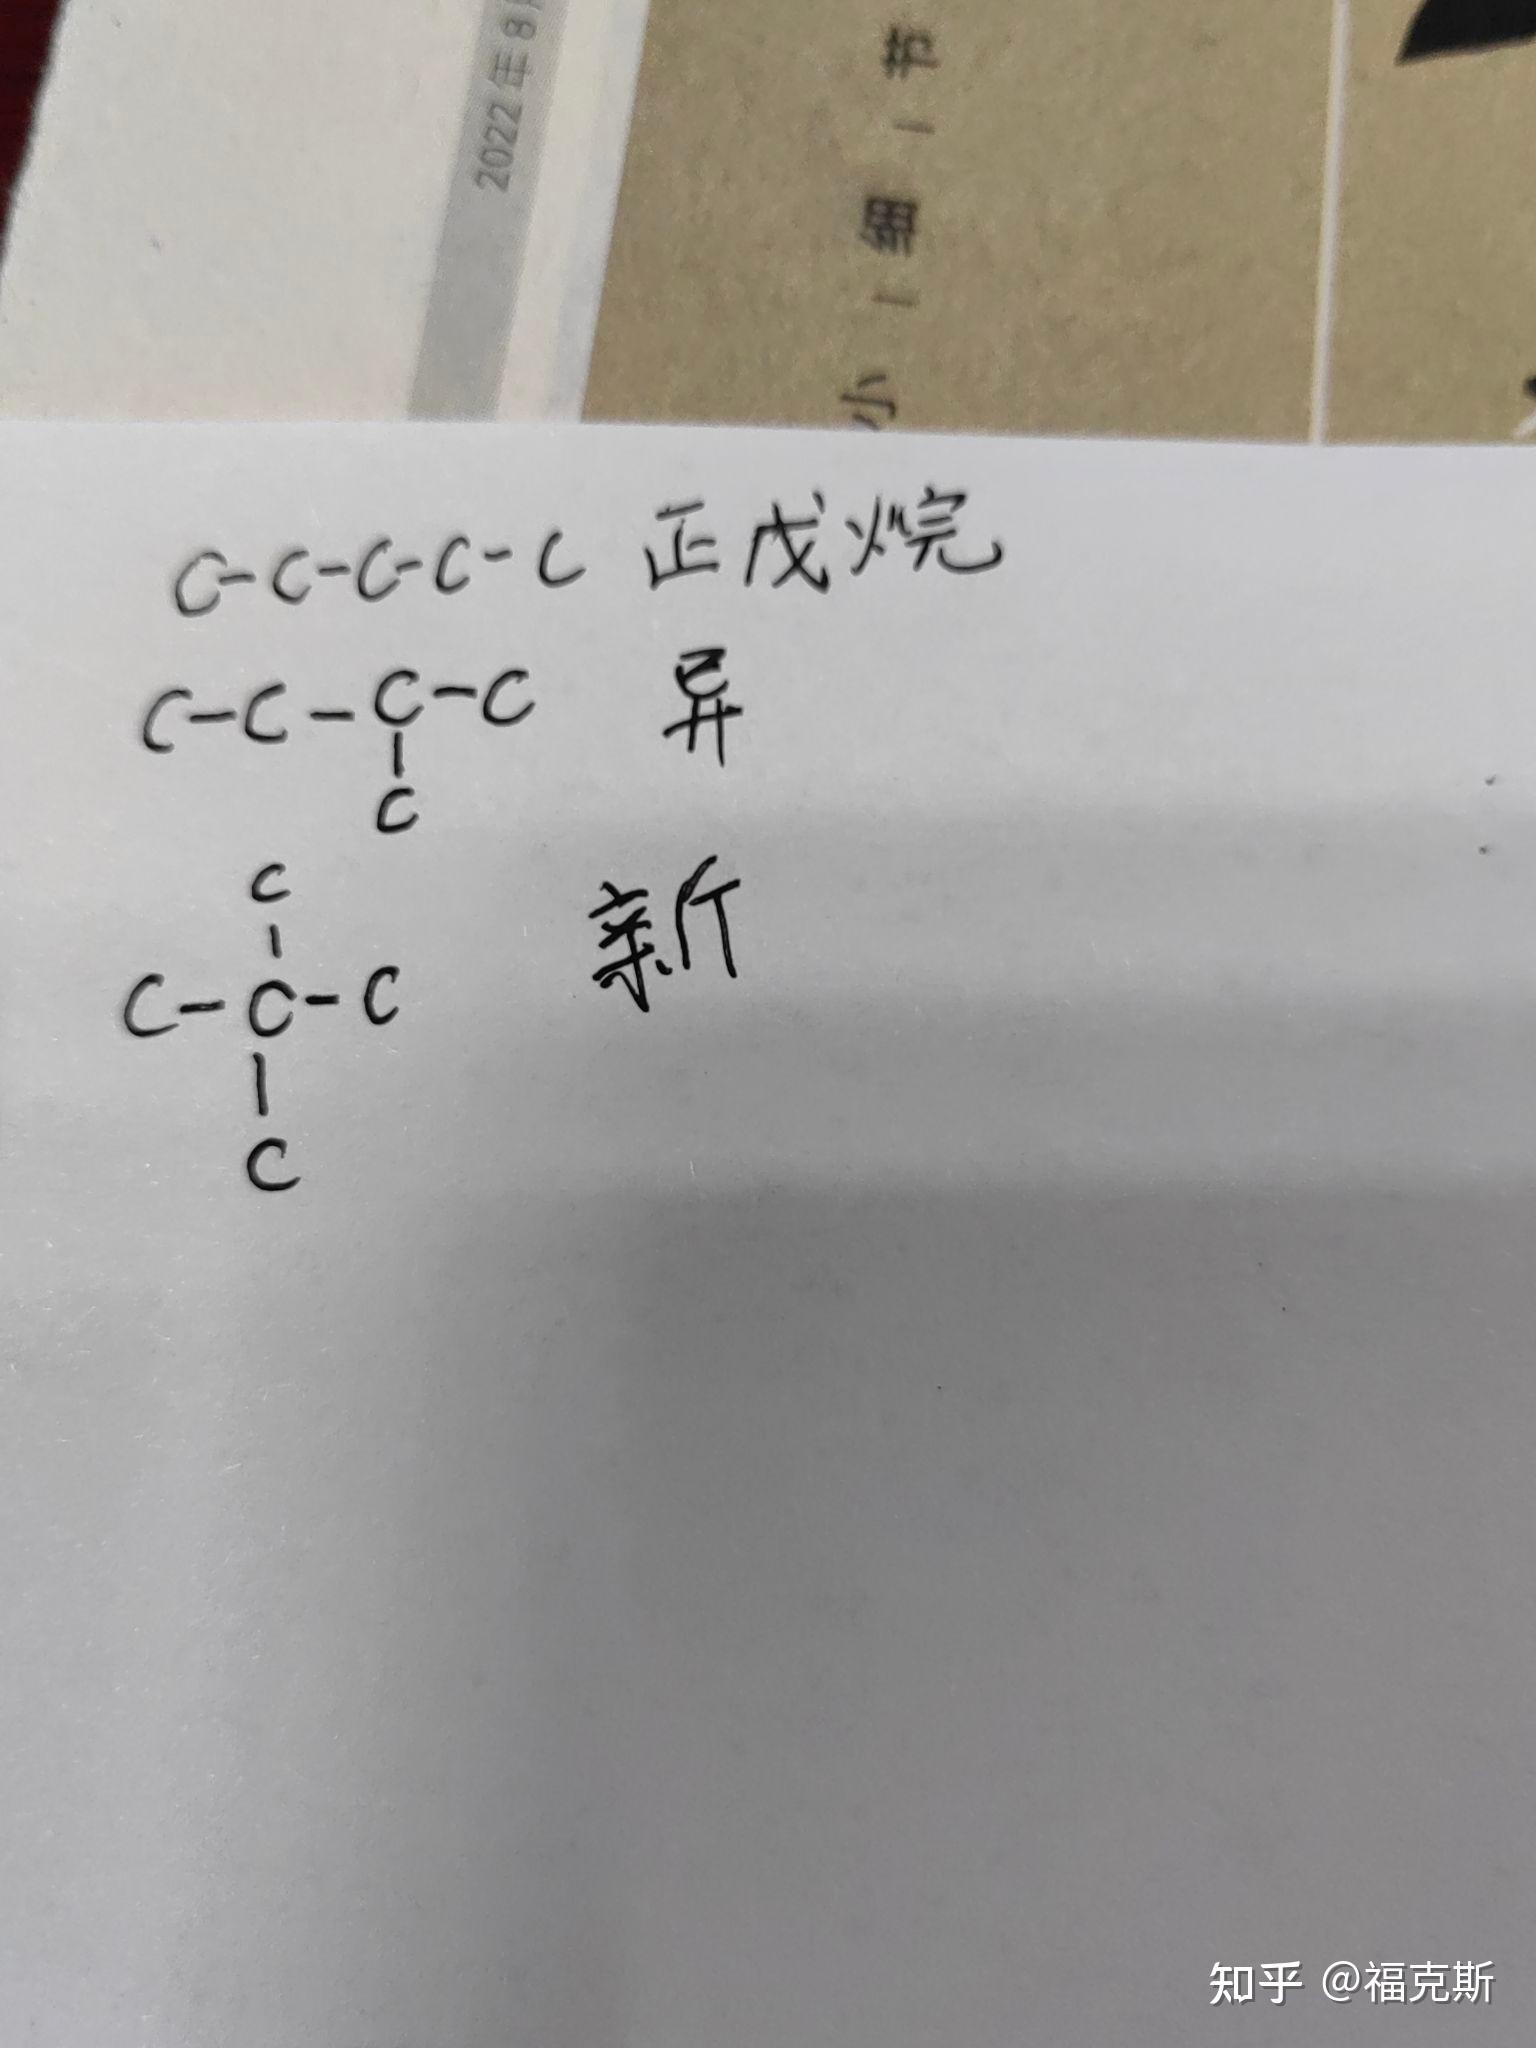 2022年8月
小 | 细 | 节
C-C-C-C-C 正戊烷
C-C-C-C 异
|
C
C
|
C-C-C 新
|
C
知乎 @福克斯